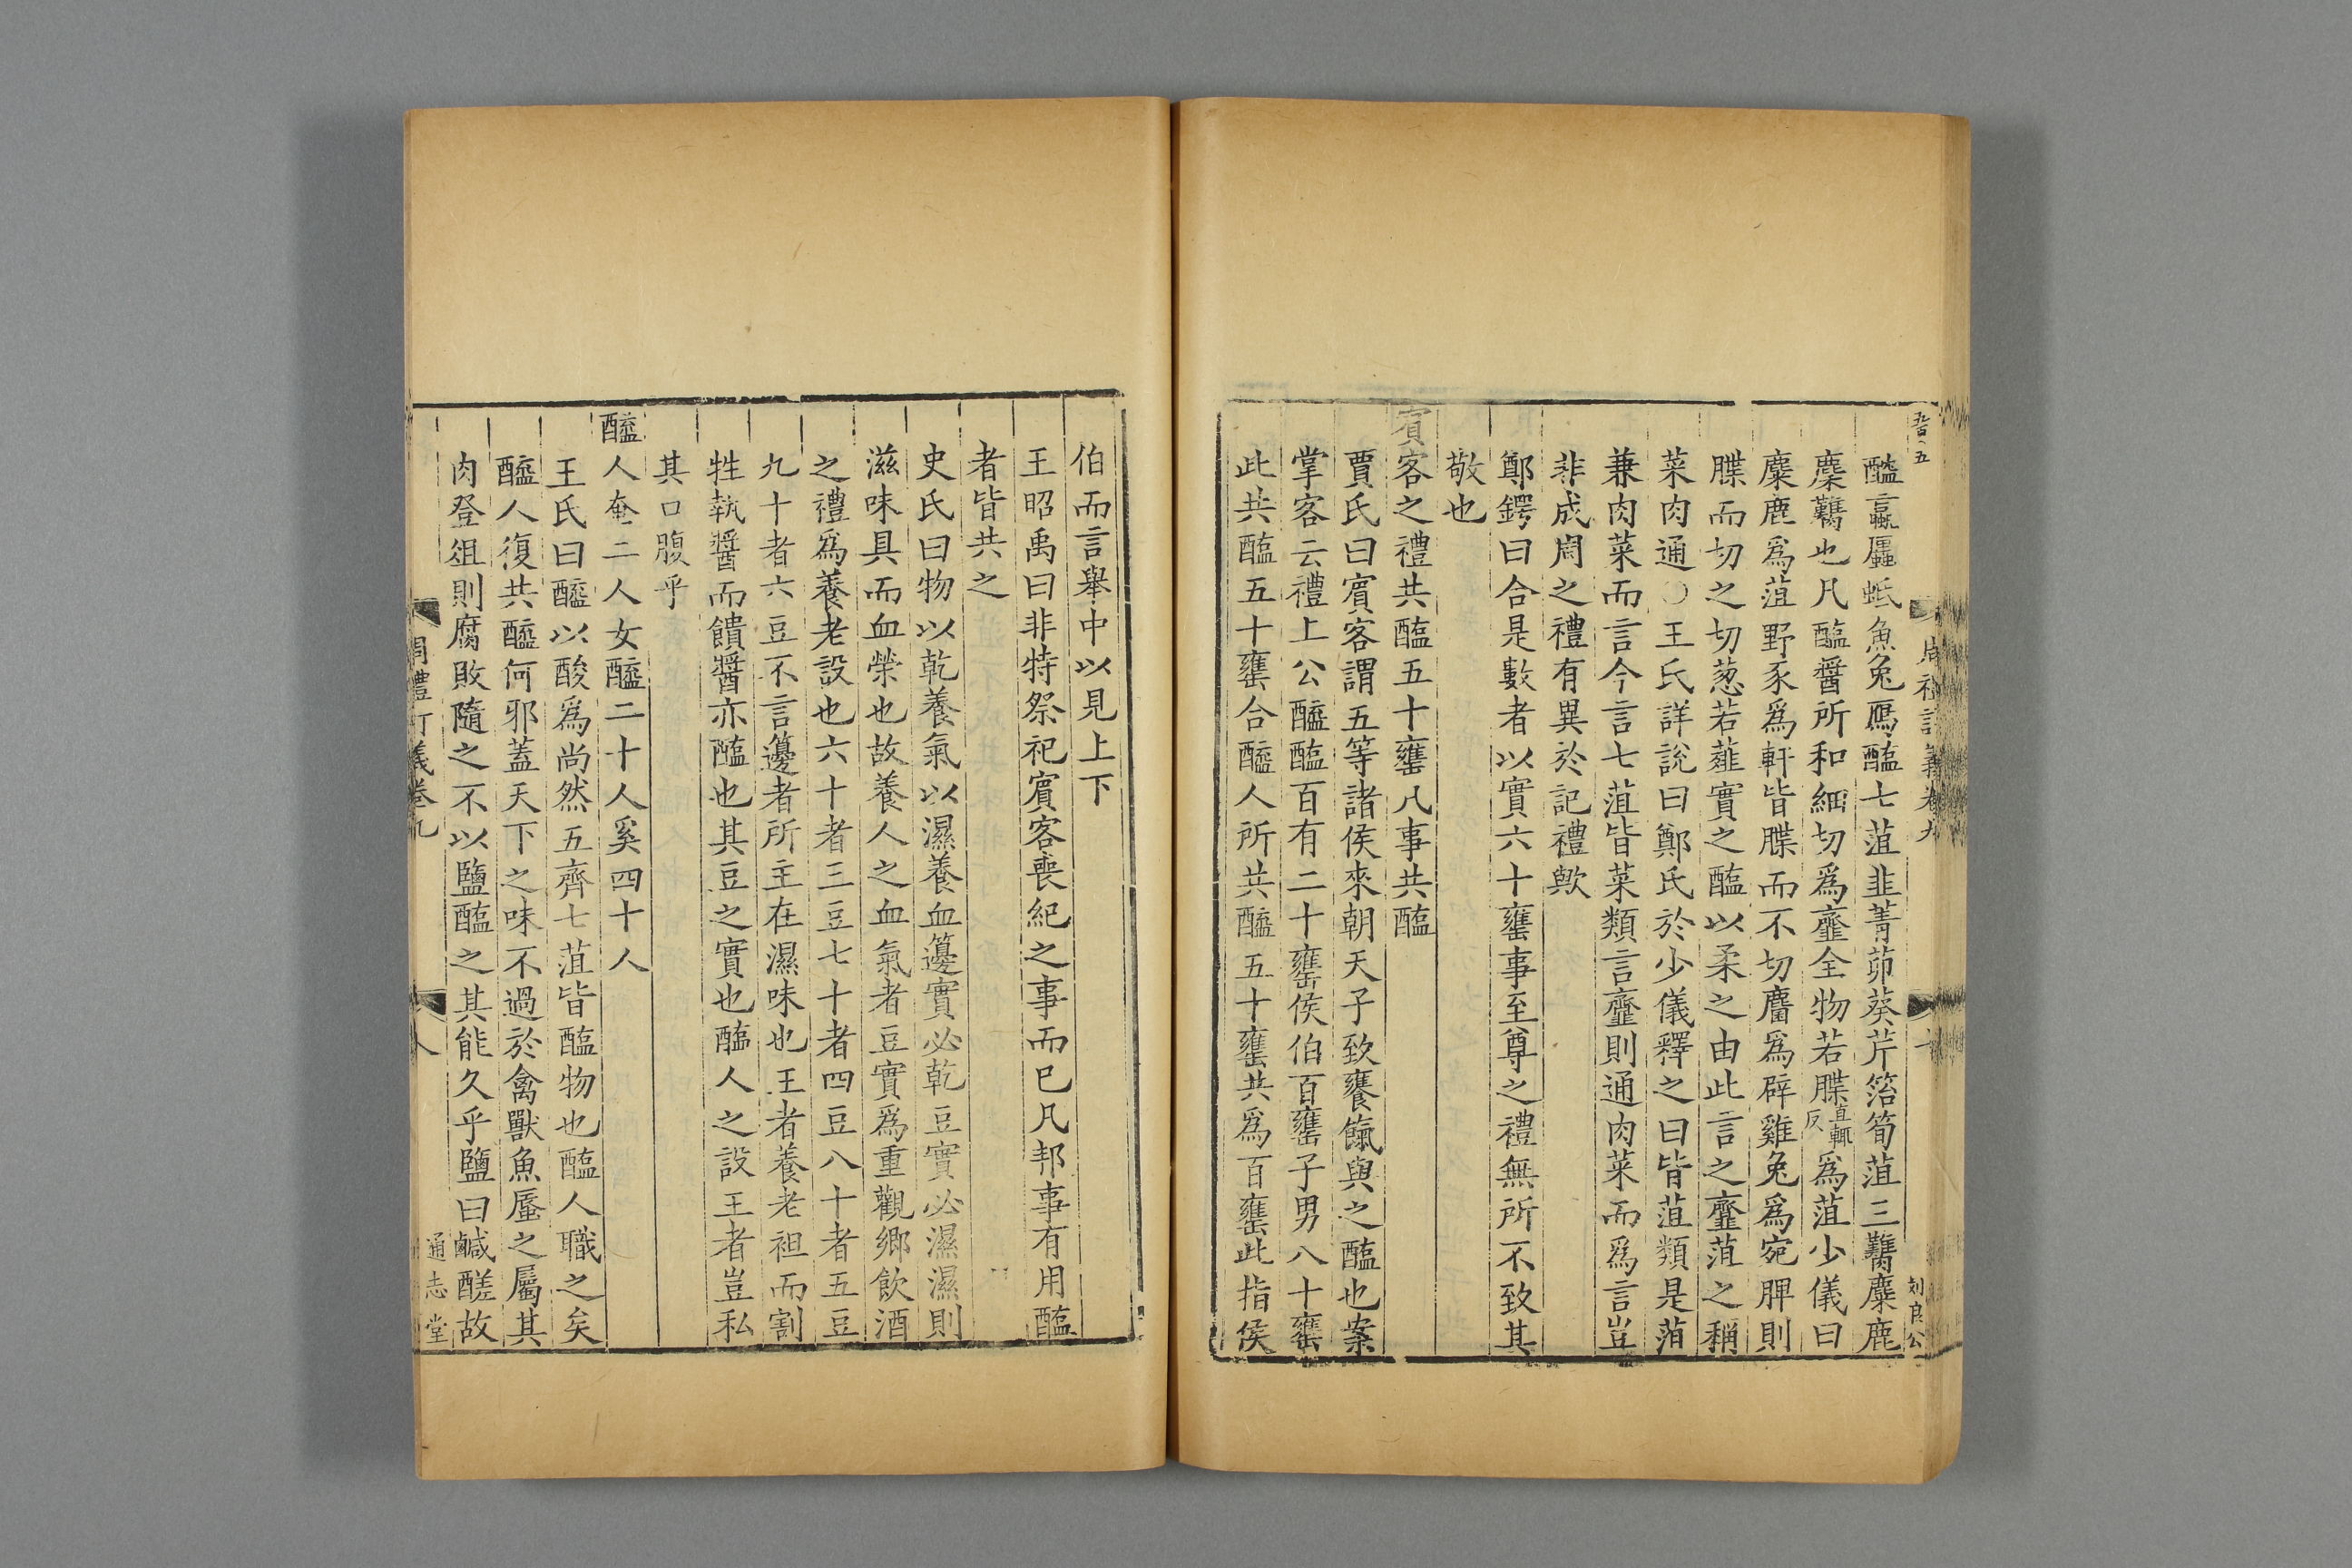 醢蠃蠯蚳魚兔鴈醢七菹韭菁茆葵芹箈筍菹三臡麋鹿
麇臡也凡醢醬所和細切爲齏全物若䐑直輒反爲菹少儀曰
麋鹿爲菹野豕爲軒皆䐑而不切麕爲辟雞兔爲宛脾則
䐑而切之切葱若薤實之醢以柔之由此言之齏菹之稱
菜肉通○王氏詳說曰鄭氏於少儀釋之曰皆菹類是菹
兼肉菜而言今言七菹皆菜類言齏則通肉菜而爲言豈
非成周之禮有異於記禮歟
鄭鍔曰合是數者以實六十罋事至尊之禮無所不致其
敬也
賓客之禮共醢五十罋凡事共醢
賈氏曰賓客謂五等諸侯來朝天子致饔餼與之醢也案
掌客云禮上公醯醢百有二十罋侯伯百罋子男八十罋
此共醢五十罋合醯人所共醯五十罋共爲百罋此指侯
伯而言舉中以見上下
王昭禹曰非特祭祀賓客喪紀之事而已凡邦事有用醢
者皆共之
史氏曰物以乾養氣以濕養血籩實必乾豆實必濕濕則
滋味具而血榮也故養人之血氣者豆實爲重觀鄉飲酒
之禮爲養老設也六十者三豆七十者四豆八十者五豆
九十者六豆不言籩者所主在濕味也王者養老袒而割
牲執醬而饋醬亦醢也其豆之實也醢人之設王者豈私
其口腹乎
醯人奄二人女醯二十人奚四十人
王氏曰醯以酸爲尚然五齊七菹皆醢物也醢人職之矣
醯人復共醯何邪蓋天下之味不過於禽獸魚蜃之屬其
肉登俎則腐敗隨之不以鹽醢之其能久乎鹽曰鹹醝故
周禮訂義卷九
八
通志堂